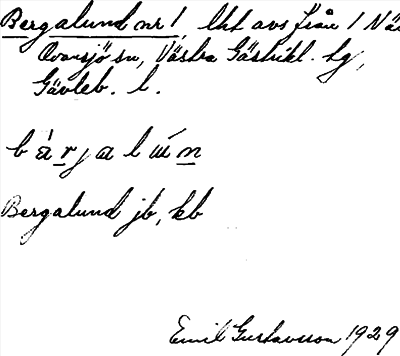 Bergalund nr 1, lht avs från 1 Nä
Ovansjö sn, Västra Gästrikl. tg,
Gävleb. l.
bärjalún
Bergalund jb, kb
Emil Gustavsson 1929